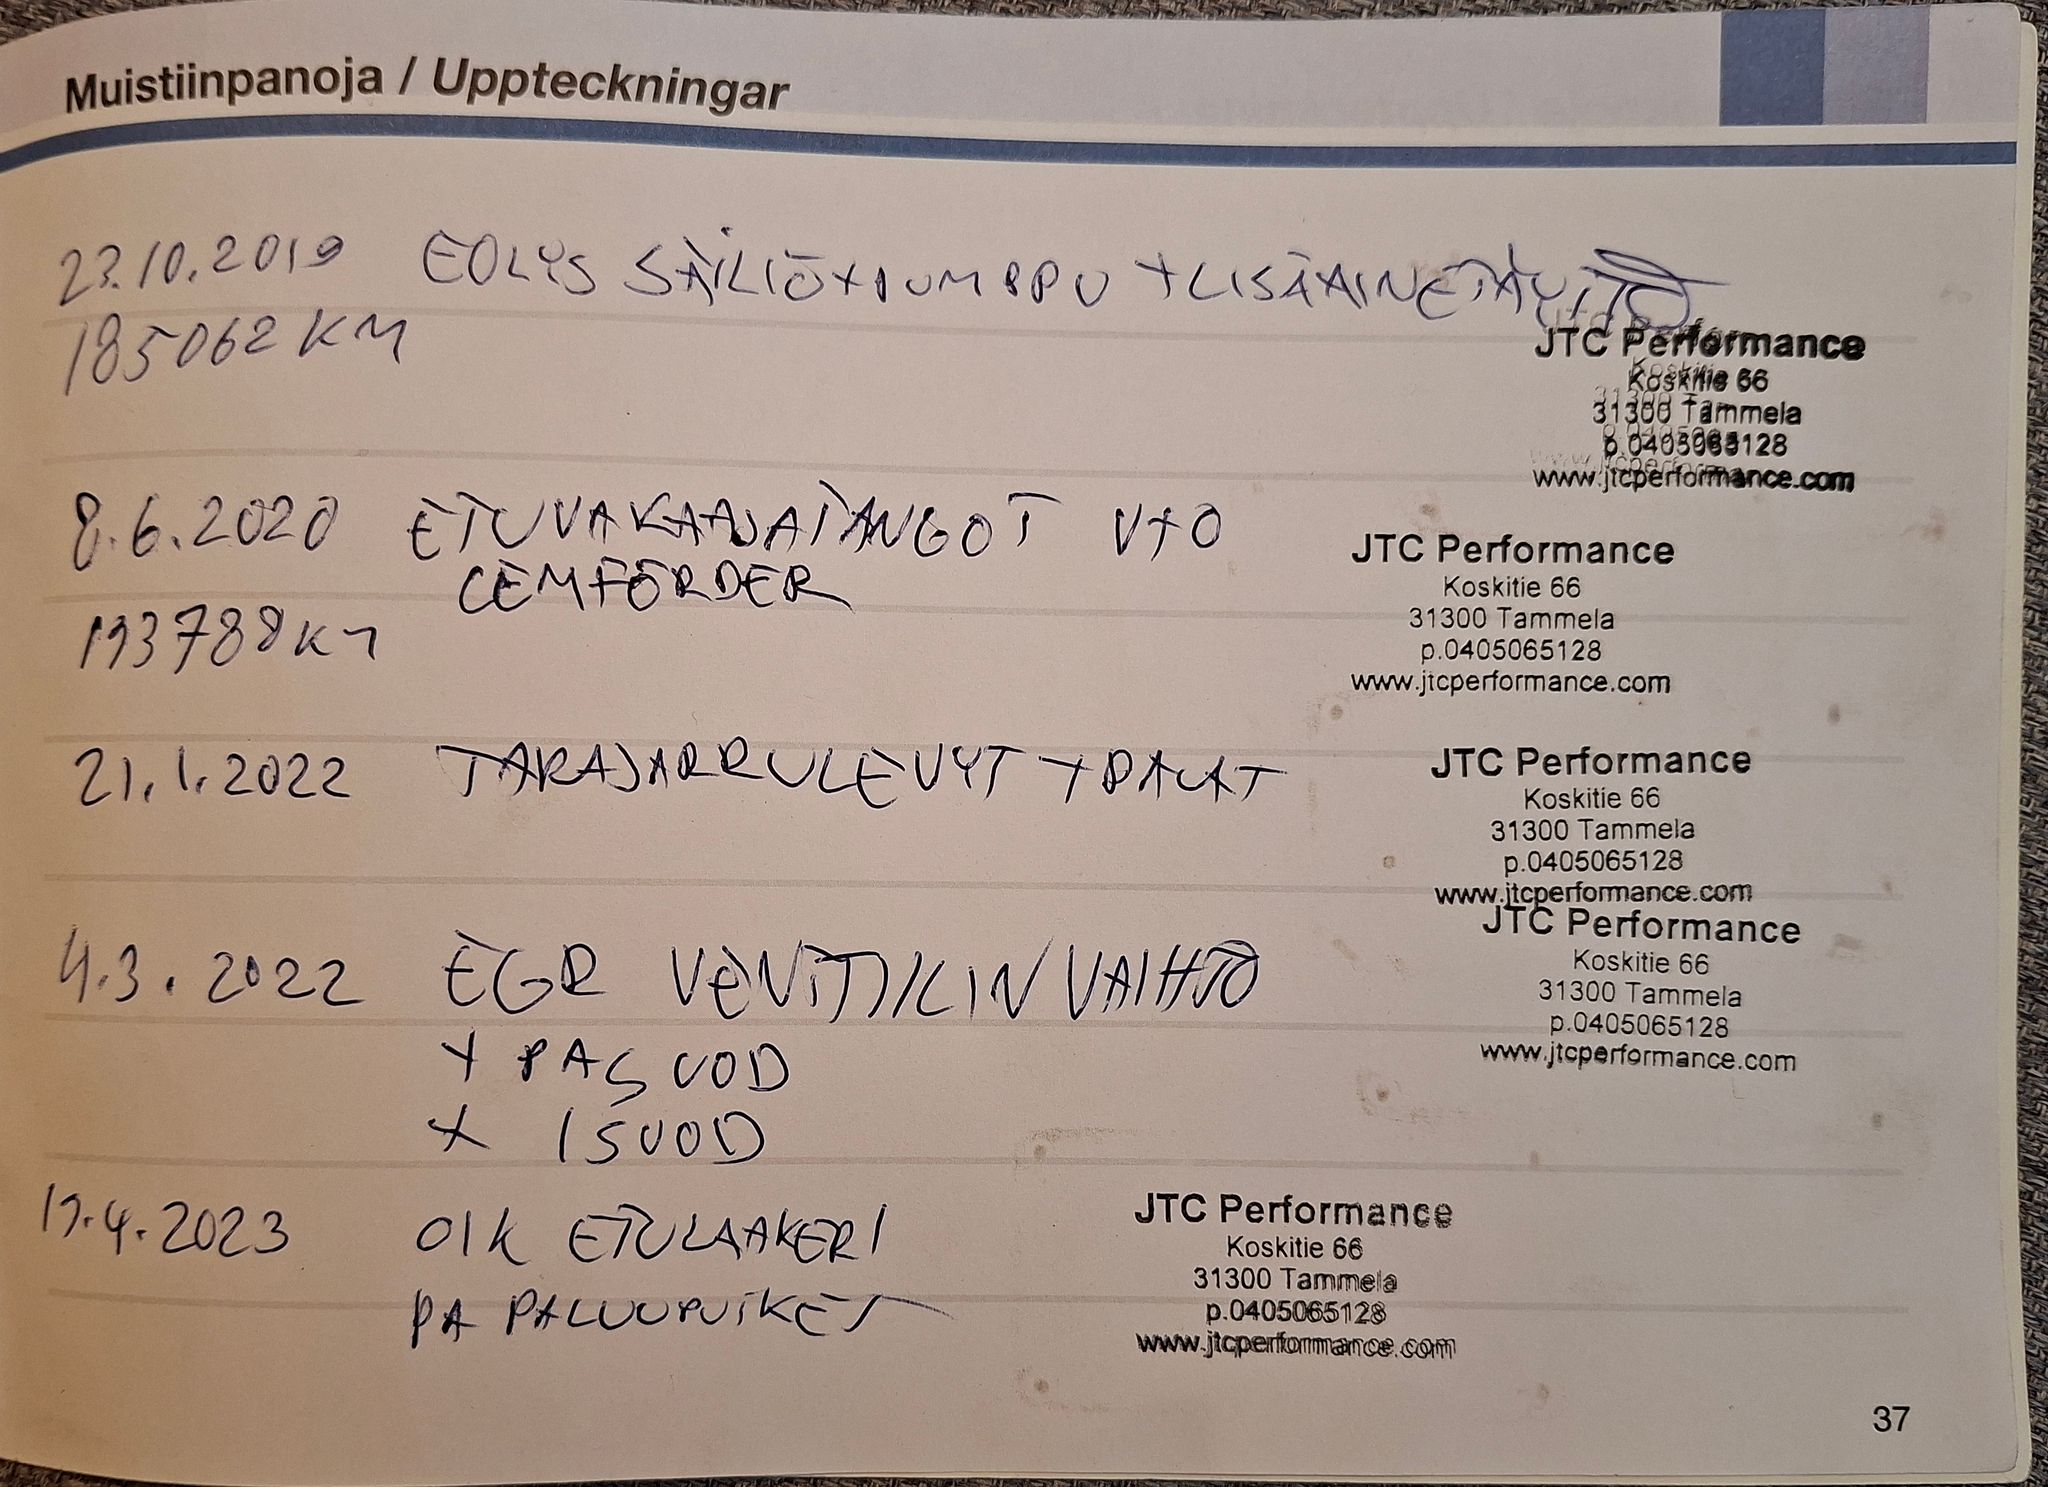 Muistiinpanoja / Uppteckningar
23.10.2019 EOLYS SÄILIÖ+PUMPPU + LISÄAINETÄYTTÖ
185062 KM
JTC Performance
Koskitie 66
31300 Tammela
p.0405065128
www.jtcperformance.com
8.6.2020 ETUVAKAAJATANGOT V+O
CEMFÖRDER
193788 KM
JTC Performance
Koskitie 66
31300 Tammela
p.0405065128
www.jtcperformance.com
21.1.2022 TAKAJARRULEVYT + PALAT
JTC Performance
Koskitie 66
31300 Tammela
p.0405065128
www.jtcperformance.com
4.3.2022 EGR VENTTIILIN VAIHTO
+ PAS VOD
+ ISUOD
JTC Performance
Koskitie 66
31300 Tammela
p.0405065128
www.jtcperformance.com
4.2023 OIK ETULAAKERI
PA PALUUPUIKET
JTC Performance
Koskitie 66
31300 Tammela
p.0405065128
www.jtcperformance.com
37